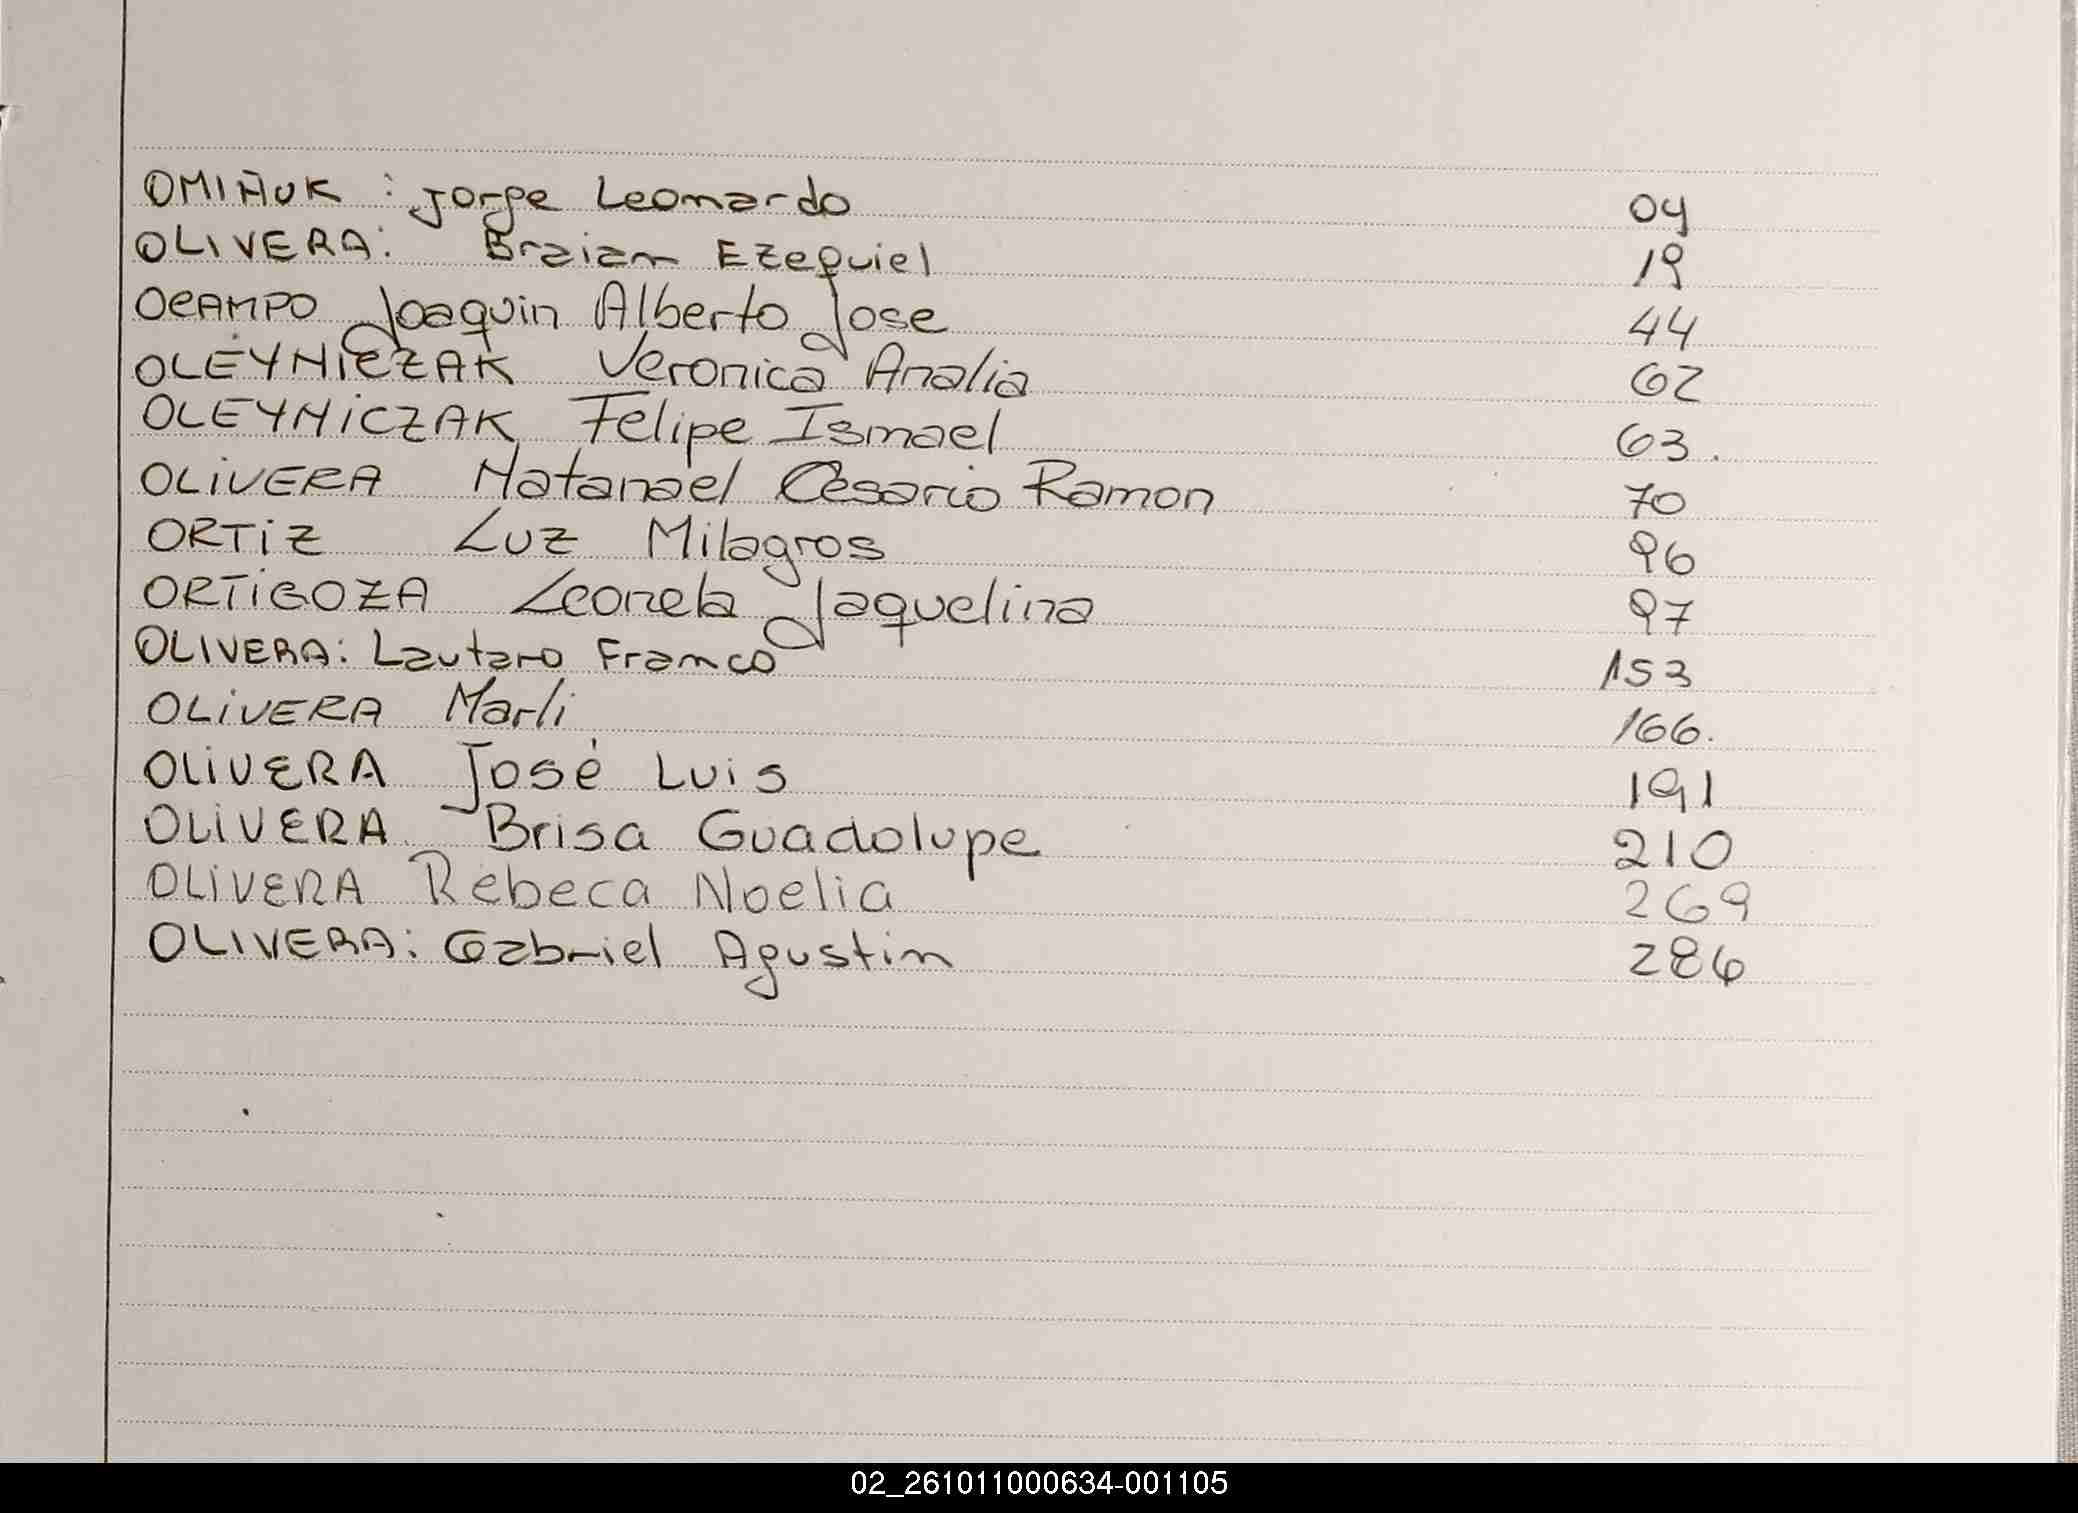 OMIÑUK : Jorge Leonardo 04
OLIVERA: Braian Ezequiel 19
OCAMPO Joaquin Alberto Jose 44
OLEYNICZAK Veronica Analia 62
OLEYNICZAK Felipe Ismael 63.
OLIVERA Natanael Cesario Ramon 70
ORTIZ Luz Milagros 96
ORTIGOZA Leonela Jaquelina 97
OLIVERA: Lautaro Franco 153
OLIVERA Marli 166.
OLIVERA José Luis 191
OLIVERA Brisa Guadalupe 210
OLIVERA Rebeca Noelia 269
OLIVERA: Gabriel Agustin 286
02_261011000634-001105